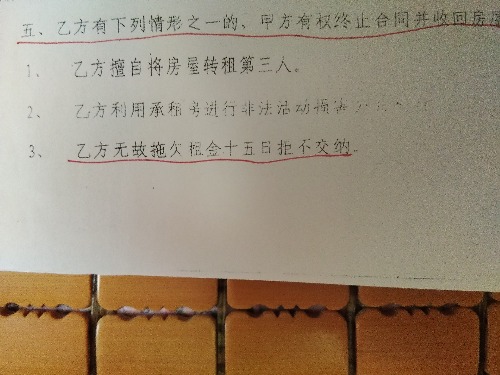 五、乙方有下列情形之一的、甲方有权终止合同并收回房
1、 乙方擅自将房屋转租第三人。
2、 乙方利用承租房进行非法活动损害
3、 乙方无故拖欠租金十五日拒不交纳。